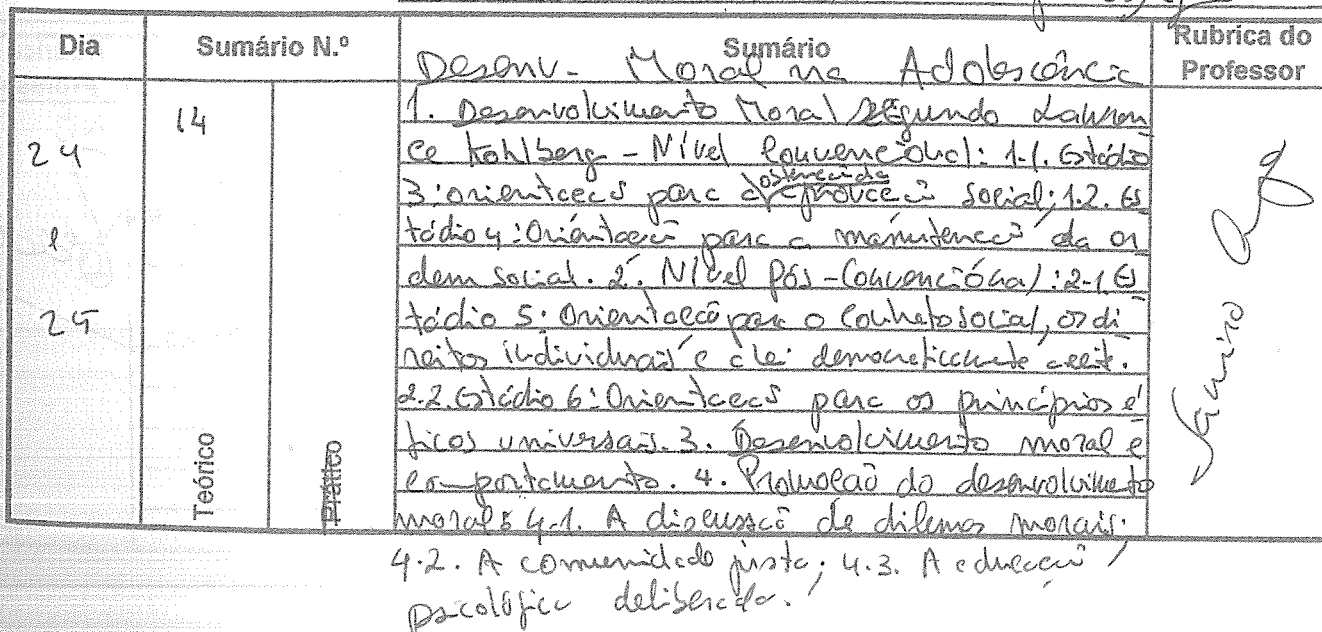 Dia
Sumário N.º
Sumário
Rubrica do
Professor
Desenv- Moral na Adolescência
14
24
e
25
1. Desenvolvimento Moral segundo Lawren
ce Kohlberg - Nível Convencional: 1-1. Estádio
3: orientação para obtenção da aprovação social; 1.2. Es
tádio 4: Orientação para a manutenção da or
dem social. 2. Nível Pós-Convencional: 2-1 Es
tádio 5: Orientação para o contrato social, os di
reitos individuais e a lei democraticamente aceite.
2.2. Estádio 6: Orientação para os princípios é
ticos universais. 3. Desenvolvimento moral e
comportamento. 4. Promoção do desenvolvimento
moral: 4-1. A discussão de dilemas morais;
4.2. A comunidade justa; 4.3. A educação
psicológica deliberada.
Teórico
Prático